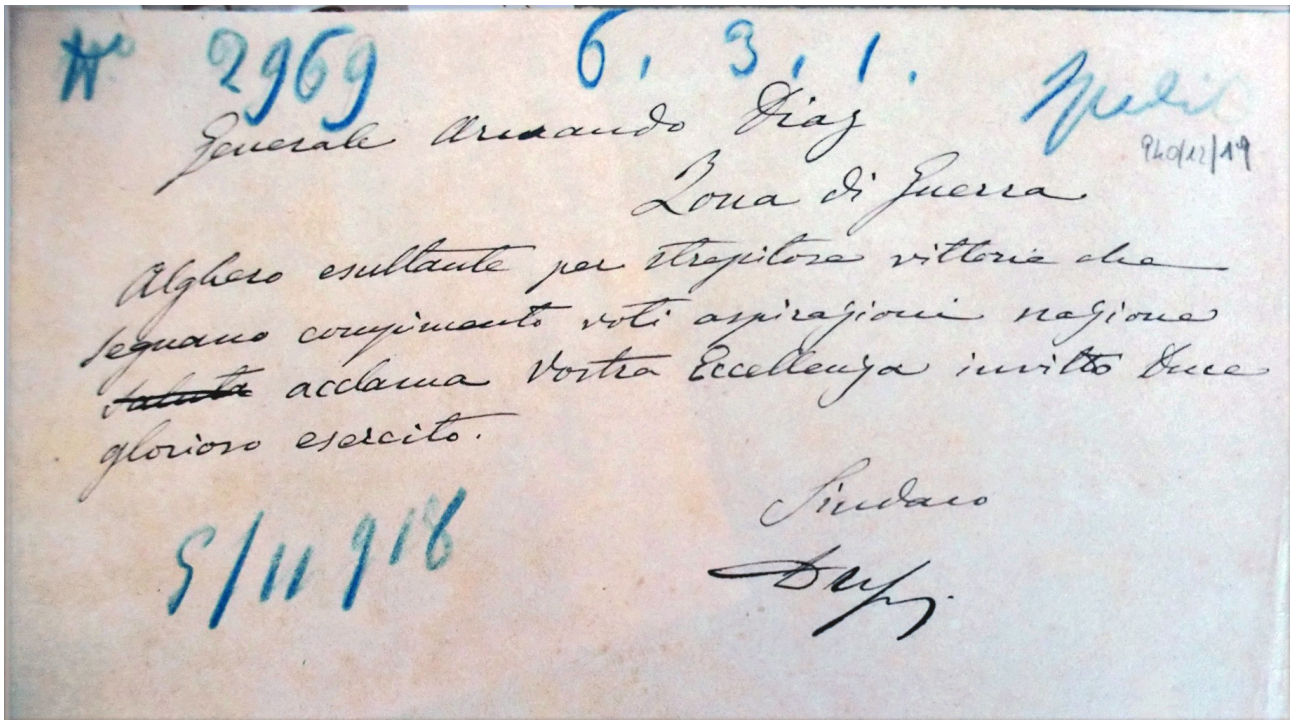 N° 2969 6. 3. 1.
940/12/19
Generale Armando Diaz
Zona di Guerra
Alghero esultante per strepitose vittorie che
segnano compimento voti aspirazioni nazione
saluta acclama Vostra Eccellenza invitto Duce
glorioso esercito.
Sindaco
5/11 918